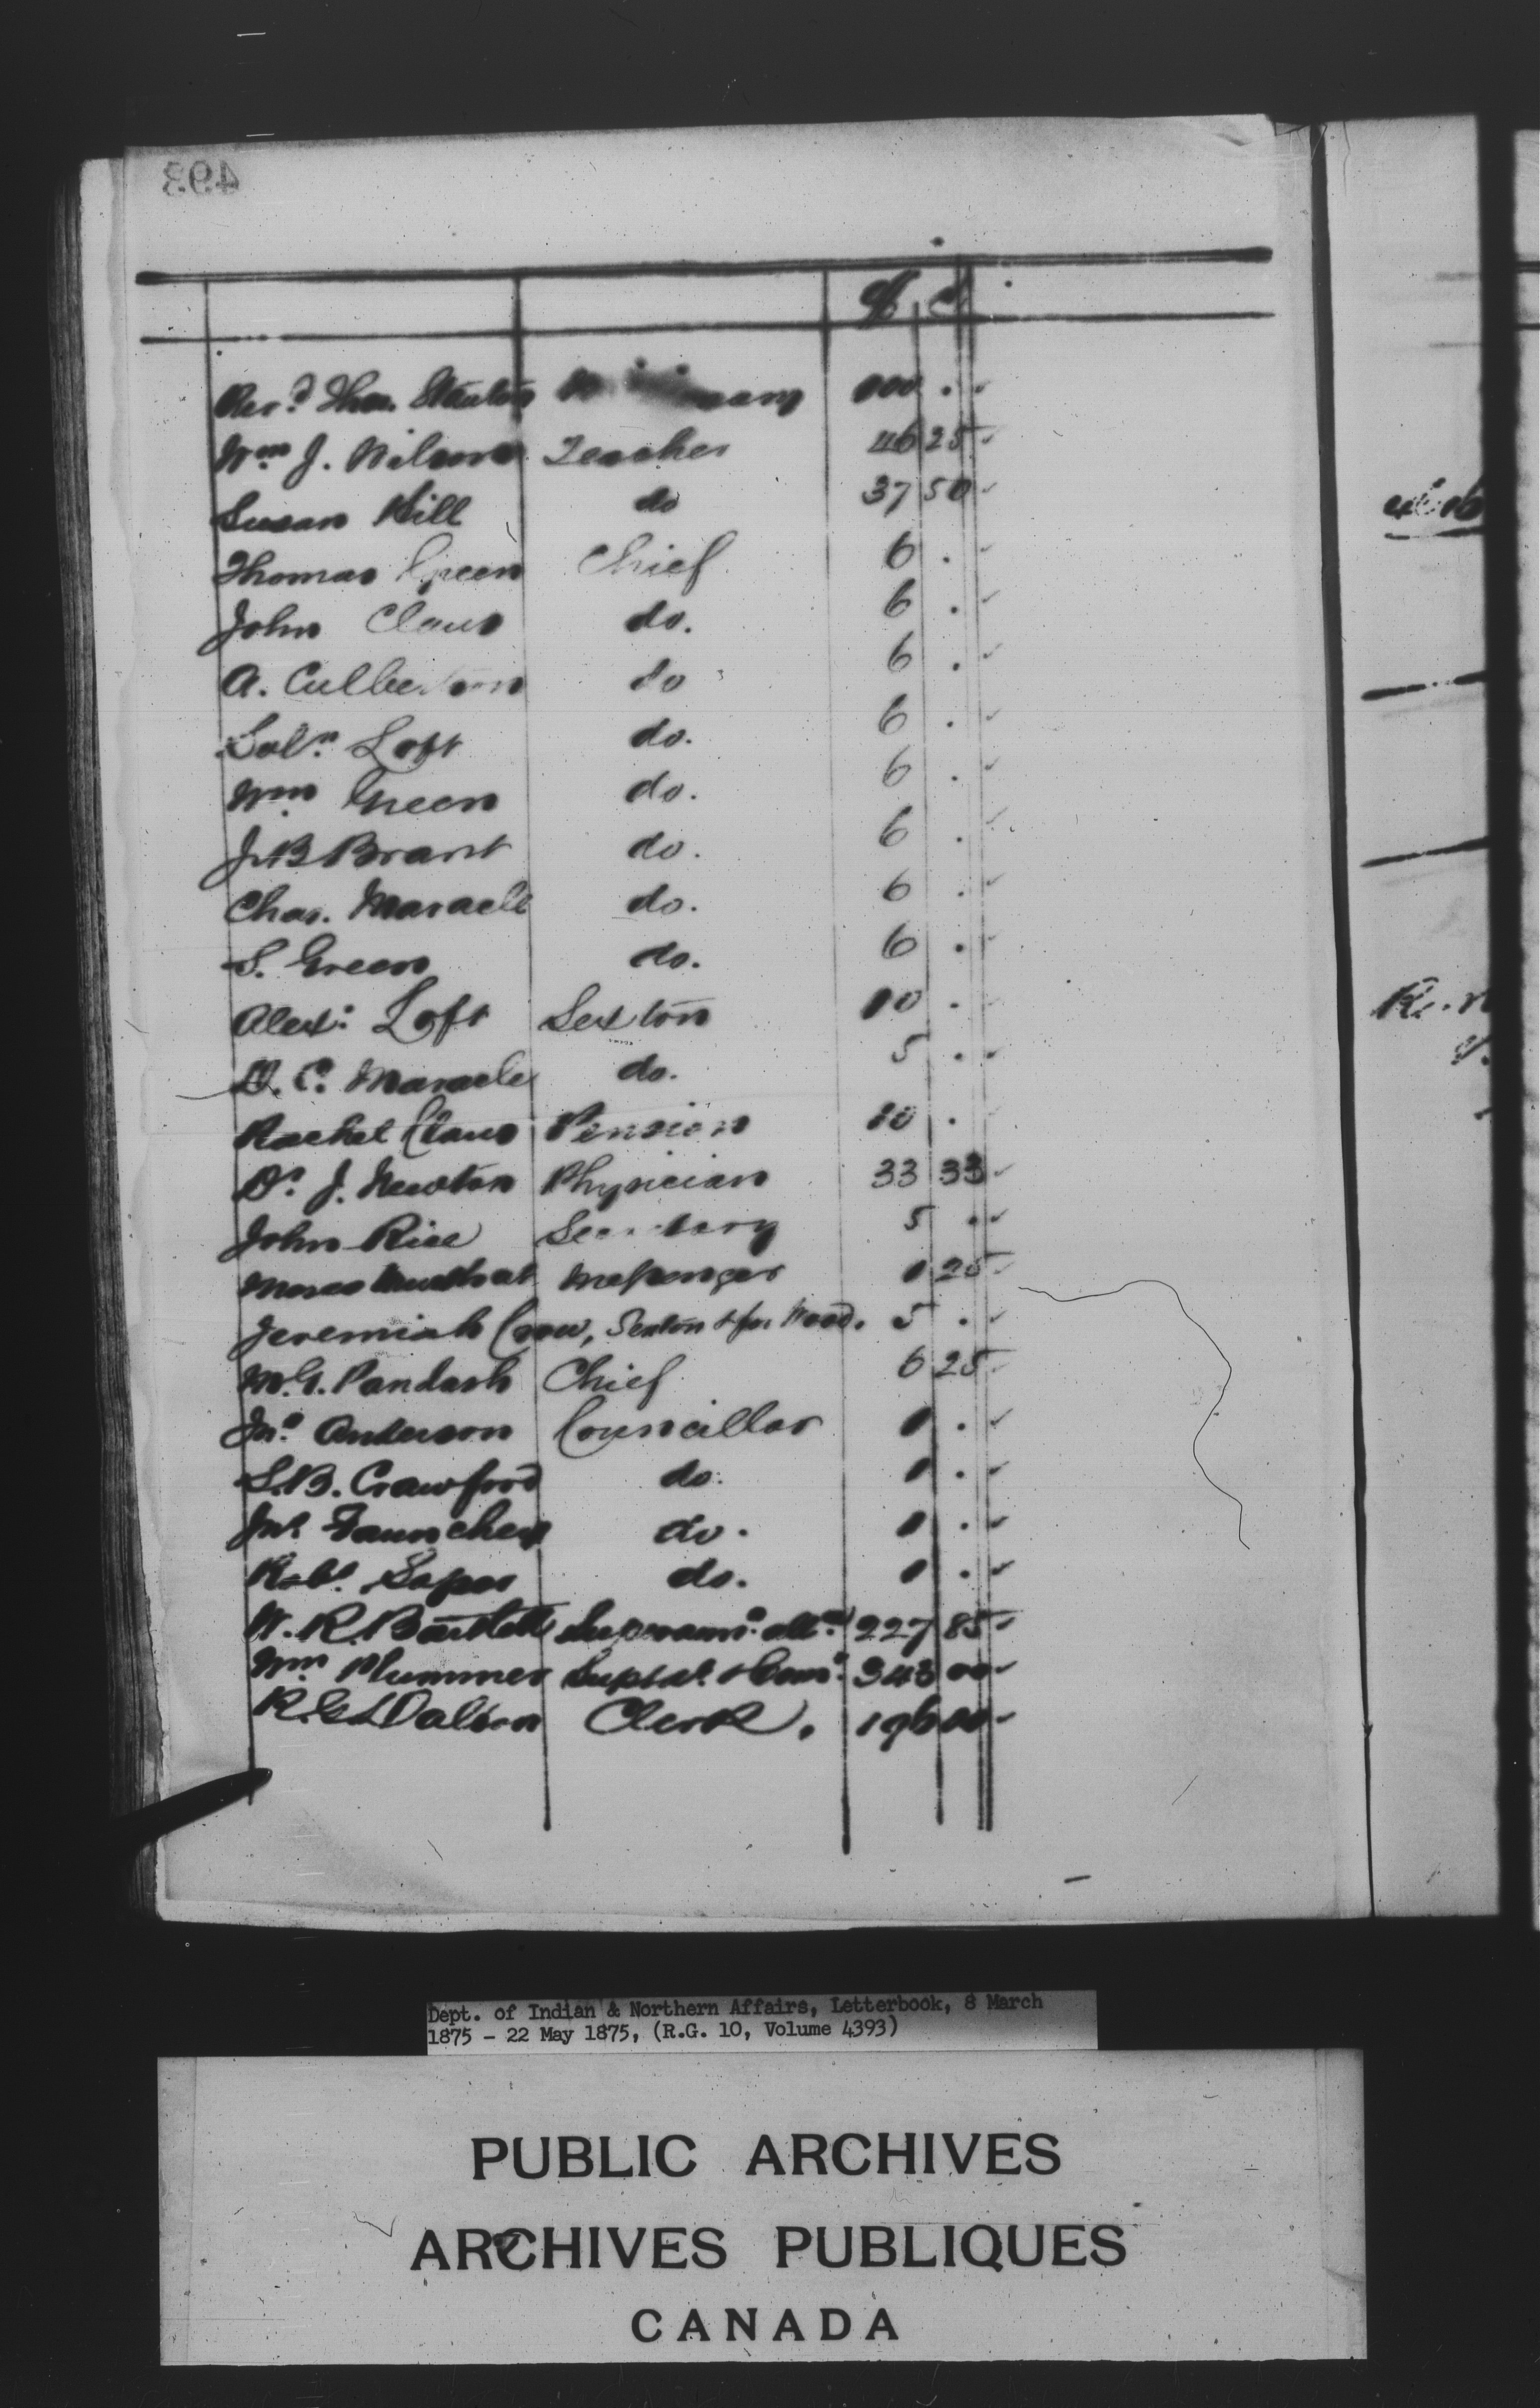 493
$ c
Rev.d Thos. Stanton 100 . .
Wm J. Wilson Teacher 46 25
Susan Hill do 37 50
Thomas Green Chief 6 .
John Claus do. 6 .
A. Culbertson do 6 .
Sol.n Loft do. 6 .
Wm Green do. 6 .
J.B Brant do. 6 .
Chas. Maracle do. 6 .
S. Green do. 6 .
Alex: Loft Sexton 10 .
D. C. Maracle do. 5 .
Rachel Claus Pension 10 .
Dr. J. Newton Physician 33 33
John Rice Secretary 5 .
Moses Messenger 25
Jeremiah Crow, Sexton & for Wood. 5 .
M.G. Paudash Chief 6 25
Jno. Anderson Councillor .
S.B. Crawford do. .
Jno. do. .
Robt. Soper do. .
W. R. Bartlett Superann. all.ce 227 85
Wm Plummer Supt. & Com.r 343 00
R.G. Dalton Clerk. 196 00
Dept. of Indian & Northern Affairs, Letterbook, 8 March
1875 - 22 May 1875, (R.G. 10, Volume 4393)
PUBLIC ARCHIVES
ARCHIVES PUBLIQUES
CANADA